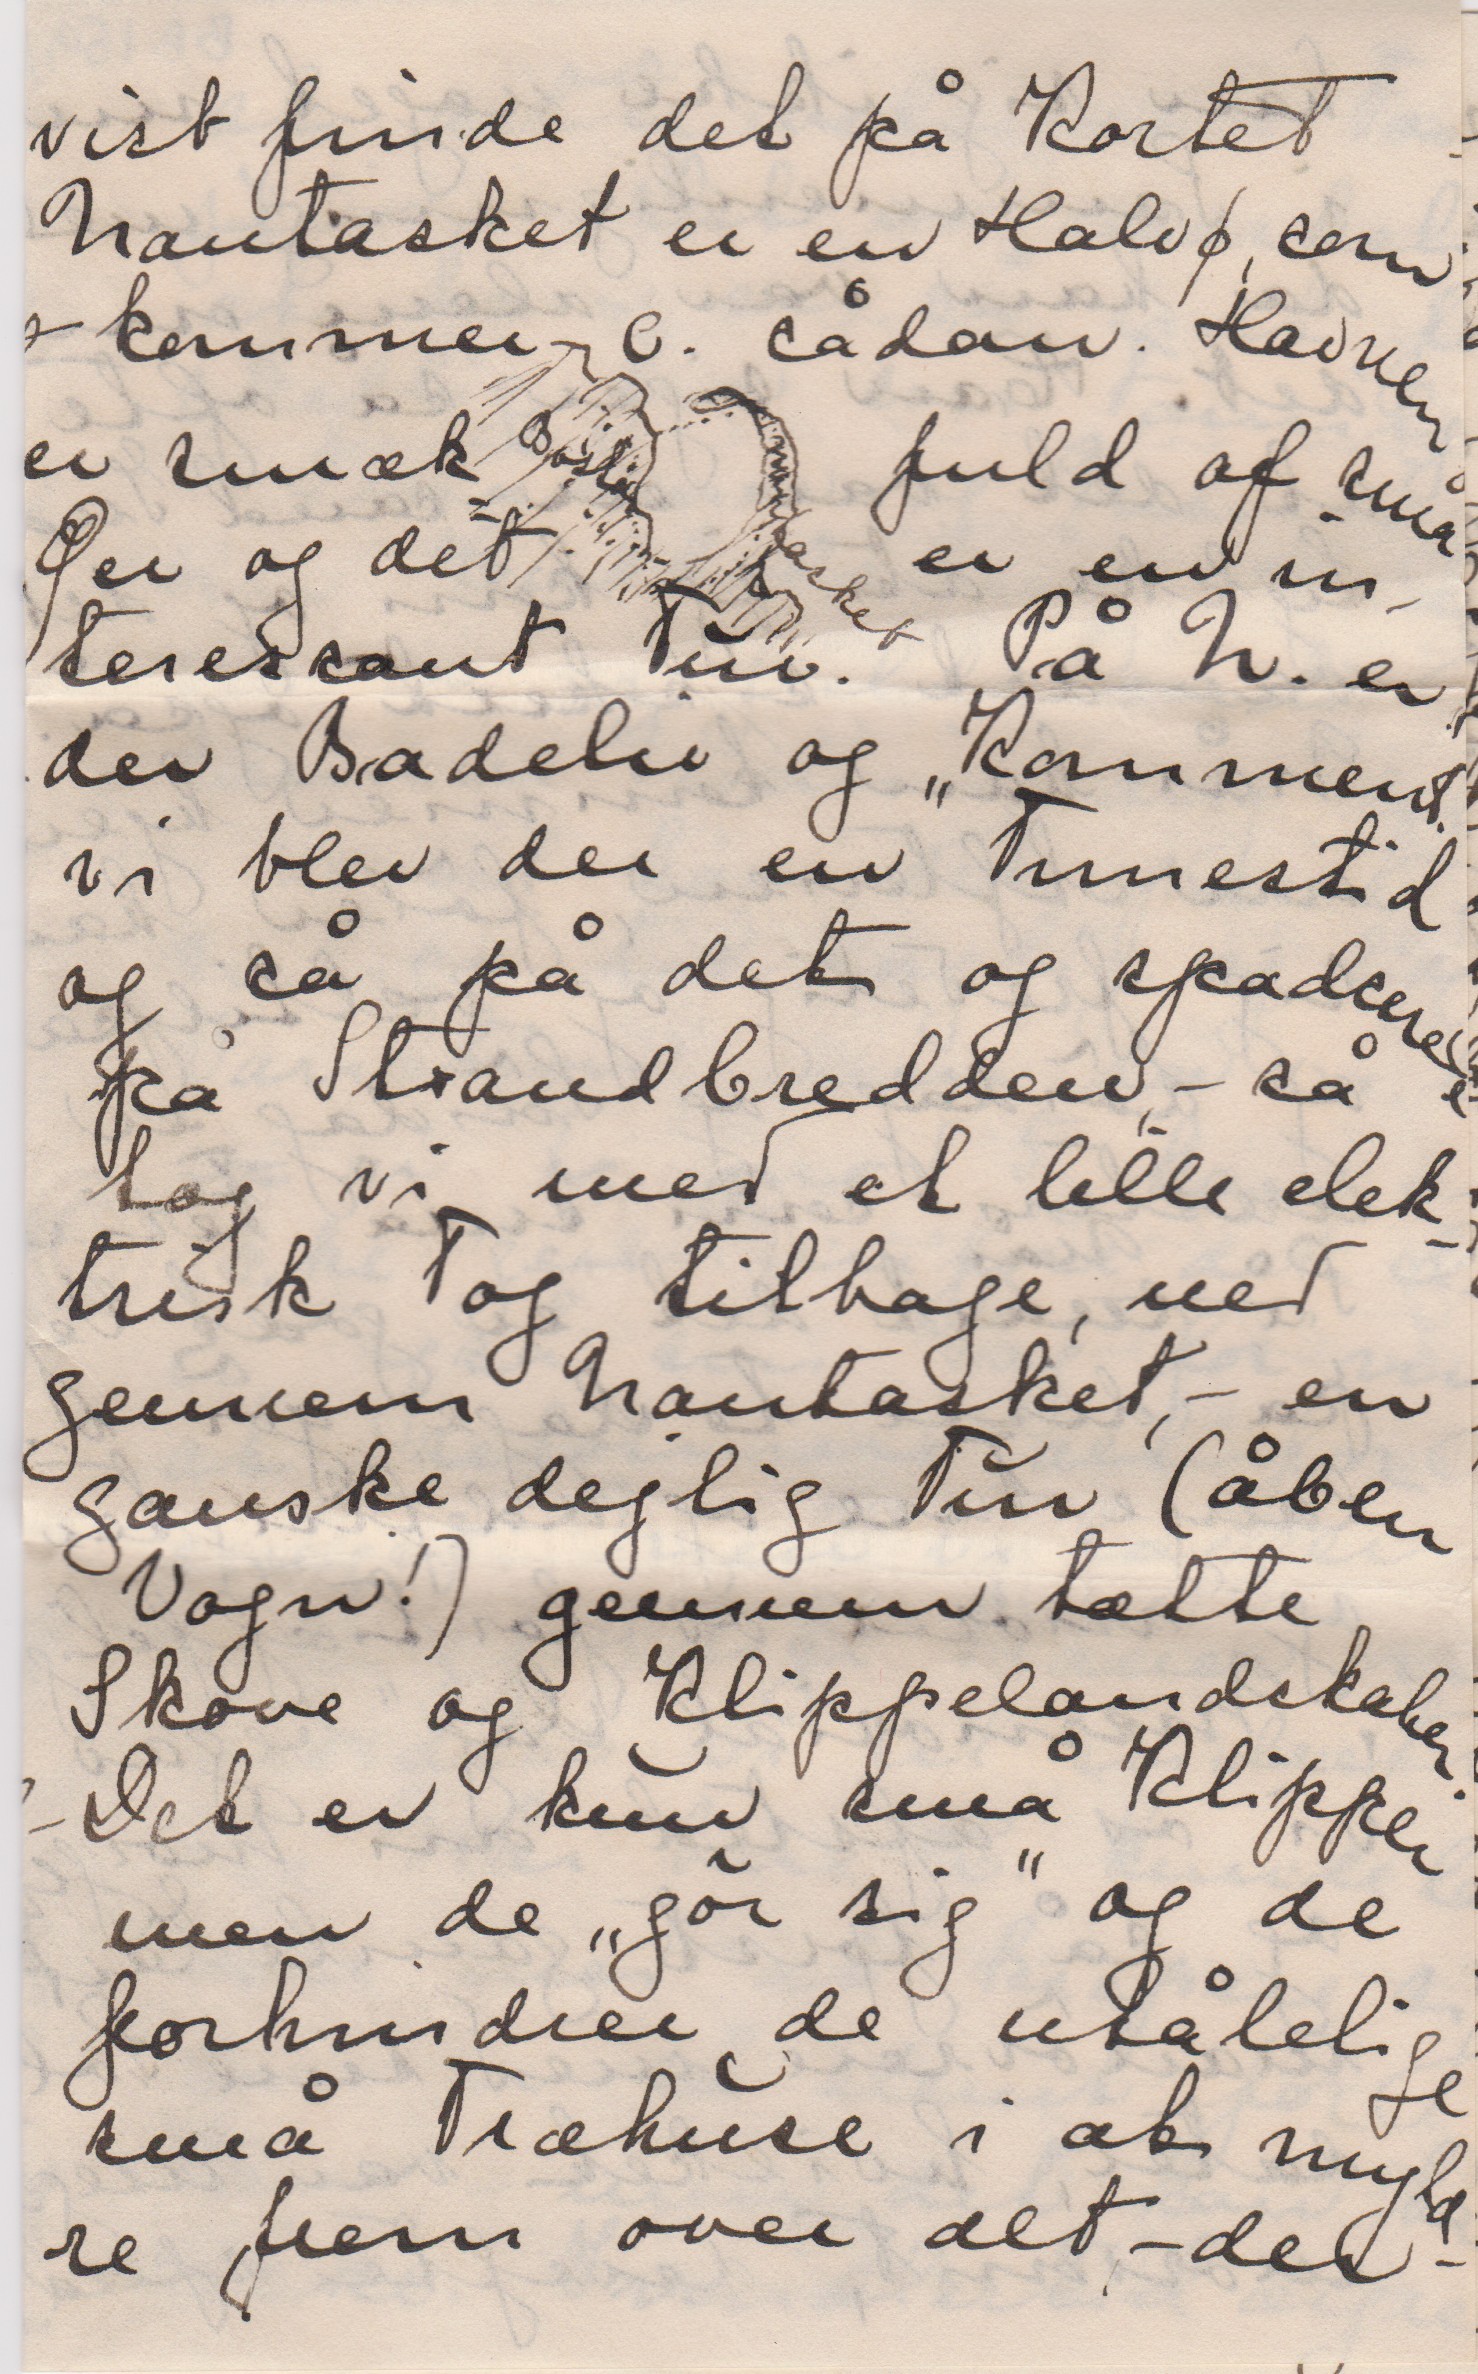 vist finde det på Kortet
Nantasket er en Halvø, som
kommer c. sådan. Havnen
er smæk Boston fuld af små
Øer og det Nantasket er en in-
teressant Tur. På N. er
der Badeliv og „Kommers"
vi blev der en Timestid
og så på det og spadserede
på Strandbredden, - så
tog vi med et lille elek-
trisk Tog tilbage, ned
gennem Nantasket, - en
ganske dejlig Tur (åben
Vogn!) gennem tætte
Skove og Klippelandskaber
- Det er kun små Klipper
men de „gör sig" og de
forhindrer de utålelige
små Træhuse i at myld-
re frem over alt, - der-